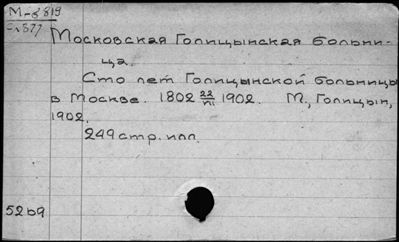 М-8 819
Сх877
Московская Голицынская больни-
ца.
Сто лет Голицынской больницы
в Москве. 1802 22/VI 1902. М., Голицын,
1902.
249 стр. илл.
52 b9